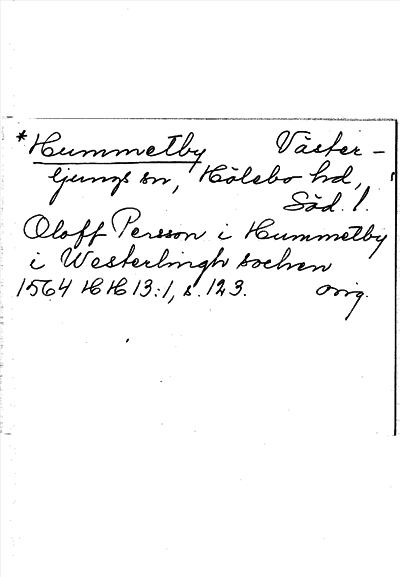 *Hummelby Väster-
ljungs sn, Hölebo hd,
Söd. l.
Oloff Persson i Hummelby
i Westerlingh sochen
1564 HH 13:1, s. 123. orig.